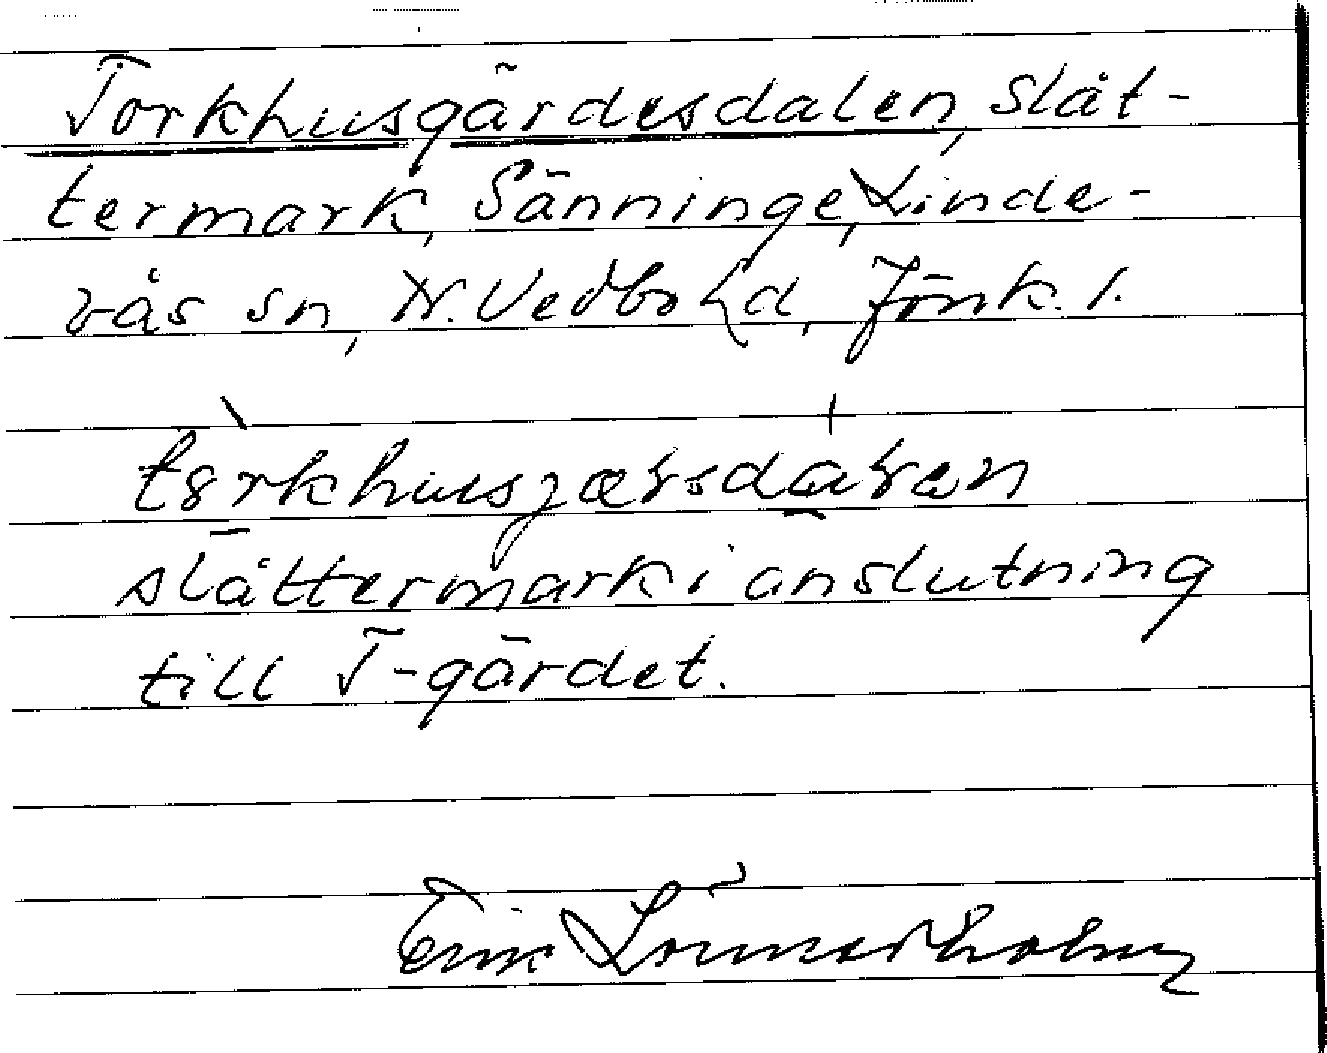 Torkhusgärdesdalen, slåt-
termark, Sänninge, Linde-
rås sn, N. Vedbo hd, Jönk. l.
slåttermark i anslutning
till T-gärdet.
Erik Lönnerholm